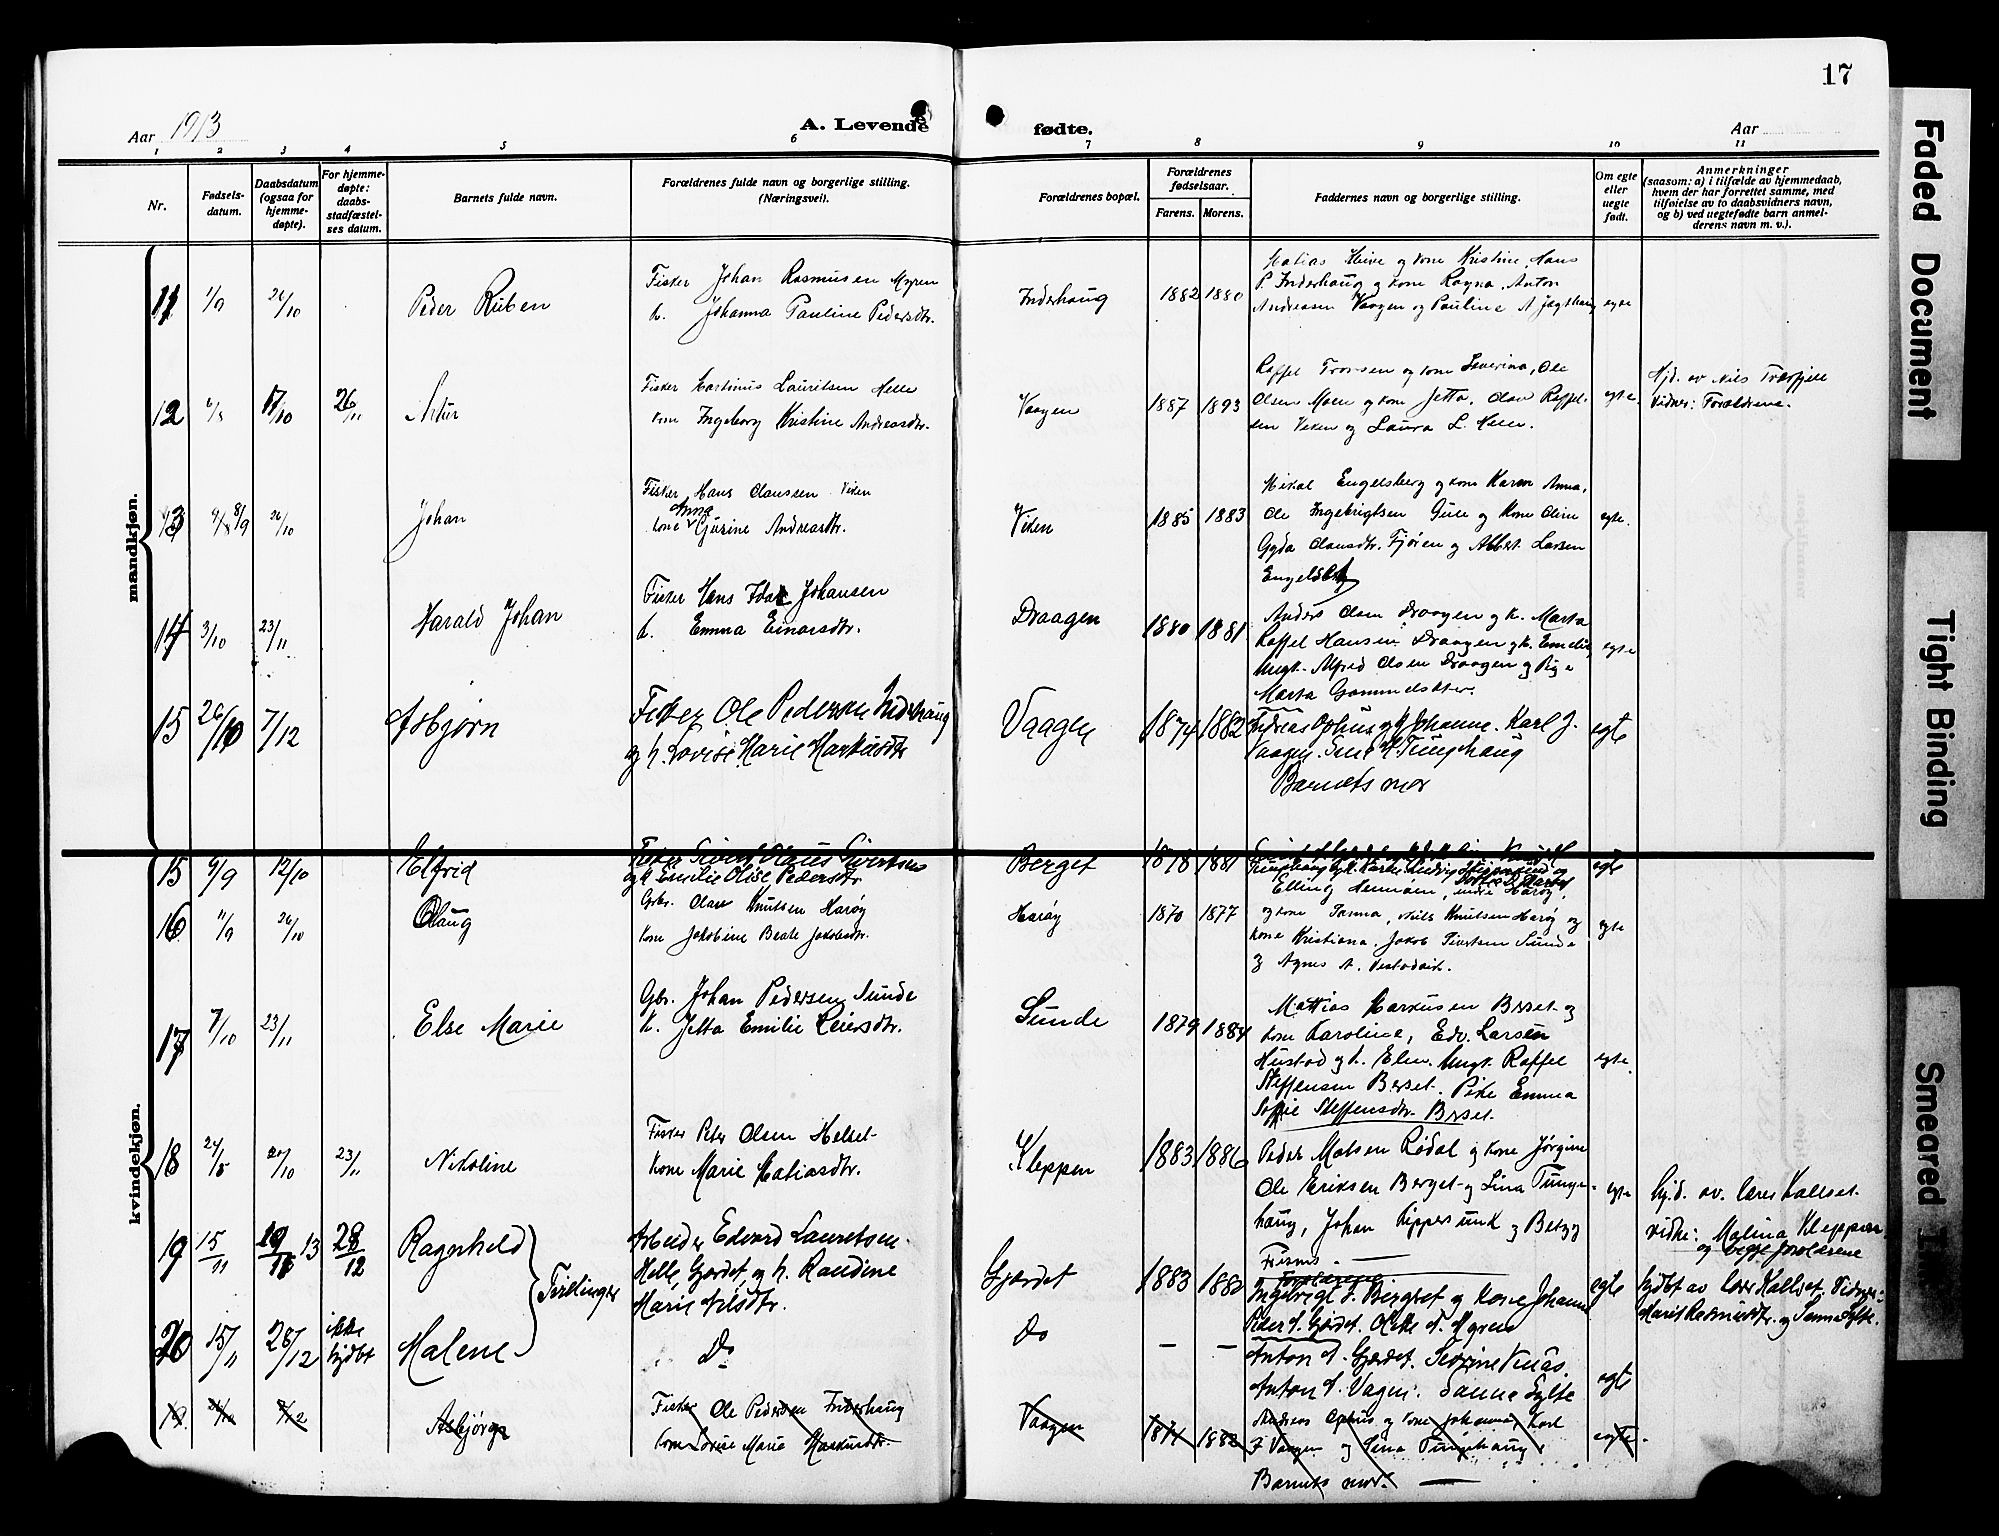 17
Aar 1913
A. Levende fødte.
Aar
1 2 3 4 5 6 7 8 9 10 11
Nr.
Fødsels-
datum.
Daabsdatum
(ogsaa for
hjemme-
døpte).
For hjemme-
døpte:
daabs-
stadfæstel-
ses datum.
Barnets fulde navn.
Forældrenes fulde navn og borgerlige stilling.
(Næringsvei).
Forældrenes bopæl.
Forældrenes
fødselsaar.
Farens. Morens.
Faddernes navn og borgerlige stilling.
Om egte
eller
uegte
født.
Anmerkninger
(saasom: a) i tilfælde av hjemmedaab,
hvem der har forrettet samme, med
tilføielse av to daabsvidners navn,
og b) ved uegtefødte barn anmel-
derens navn m. v.).
mandkjøn.
11 1/9 26/10 Peder Ruben
Fisker Johan Rasmusen Myren
k. Johanna Pauline Pedersdtr.
Inderhaug 1882 1880
Matias Heive og kone Kristine, Hans
P. Inderhaug og kone Ragna, Anton
Andreasen Vaagen og Pauline A Jægthaug
egte
12 17/10 26/11 Artur
Fisker Martinus Lauritsen Helle
kone Ingeborg Kristine Andreasdtr.
Vaagen 1887 1893
Raffel Tronsen og kone Severina, Ole
Olsen Moen og kone Jetta, Olav Raffel-
sen Viken og Laura L.
egte
Hjd. av Nils Tverfjell
Vidner: Forældrene.
13 8/9 26/10 Johan
Fisker Hans Clausen Viken
kone Anna Gjurine Andreasdtr.
Viken 1885 1883
Mikal Engelsberg og kone Karen Anna,
Ole Ingebrigtsen Gule og kone Oline
Gyda Clausdtr. Fjøren og Albert Larsen
Engelsberg
egte.
14 3/10 23/11 Harald Johan
Fisker Hans Johansen
k. Emma Einarsdtr.
Draagen 1880 1881
Anders Olsen Draagen og k. Marta
Raffel Hansen Draagen og k. Emelie,
Ungk. Alfred Olsen Draagen og Pige
Marta Gammelsdtr.
egte
15 26/10 7/12 Asbjørn
Fisker Ole Pedersen Inderhaug
og h. Lovise Marie Markusdtr
Vaagen 1874 1882
Andreas Ophus og k Johanne. Karl J.
Vaagen. Tunghaug
Barnets mor
egte
kvindekjøn.
15 9/9 12/10 Elfrid
Fisker Sivert Olaus Sivertsen
og k Emelie Olise Pedersdtr
Berget 1878 1881
egte
16 11/9 26/10 Olaug
Gbr. Olav Knutsen Harøy
kone Jakobine Beate Jakobsdtr.
Harøy 1870 1877
Elling
og kone Janna, Nils Knutsen Harøy og
kone Kristiana, Jakob Sivertsen Sunde
og Agnes A.
egte
17 7/10 23/11 Else Marie
Gbr. Johan Pedersen Sunde
k. Jetta Emilie Leiersdtr.
Sunde 1879 1884
Mattias Markusen Berset og
kone Karoline, Edv. Larsen
Hustad og k. Elen. Ungk. Raffel
Steffensen Berset. Pike Emma
Sofie Steffensdtr. Berset.
egte.
18 24/8 23/11 Nikoline
Fisker Peter Olsen Helset
kone Marie Matiasdtr.
Kleppen 1883 1886
Peder Matsen Rødal og kone Jørgine
Ole Eriksen Berget og Lina Tunge-
haug, Johan og Betzy
egte
hjd. av. Lars Kallset.
vidne: Malina Kleppen
og begge forældrene
19 15/11 19/11 13 28/12 Ragnhild
Arbeider Edvard Lauretsen
Helle, Gjerdet, og h. Raudine
Marie Nilsdtr.
Tvillinger
Gjerdet 1883 1882
Ingebrigt J. Berget og kone Johanne
Peder A. Gjerdet. A. Myren
egte
hjdbt av Lars Kallset. Vidner:
Marit Rasmusdtr. og Sanna Sylte.
20 15/11 28/12 ikke hjdbt Malene
Do
Do — —
Anton A. Gjerdet. Severine Knøs.
Anton A. Vagen. Sanna Sylte
egte
19 26/10 7/12 Asbjørg
Fisker Ole Pedersen Inderhaug
kone Lovise Marie Markusdtr.
Vaagen 1874 1882
Andreas Ophus og kone Johanna, Karl
J Vaagen og Lina Tungehaug,
Barnets mor.
egte
Faded Document
Tight Binding
Smeared Ink